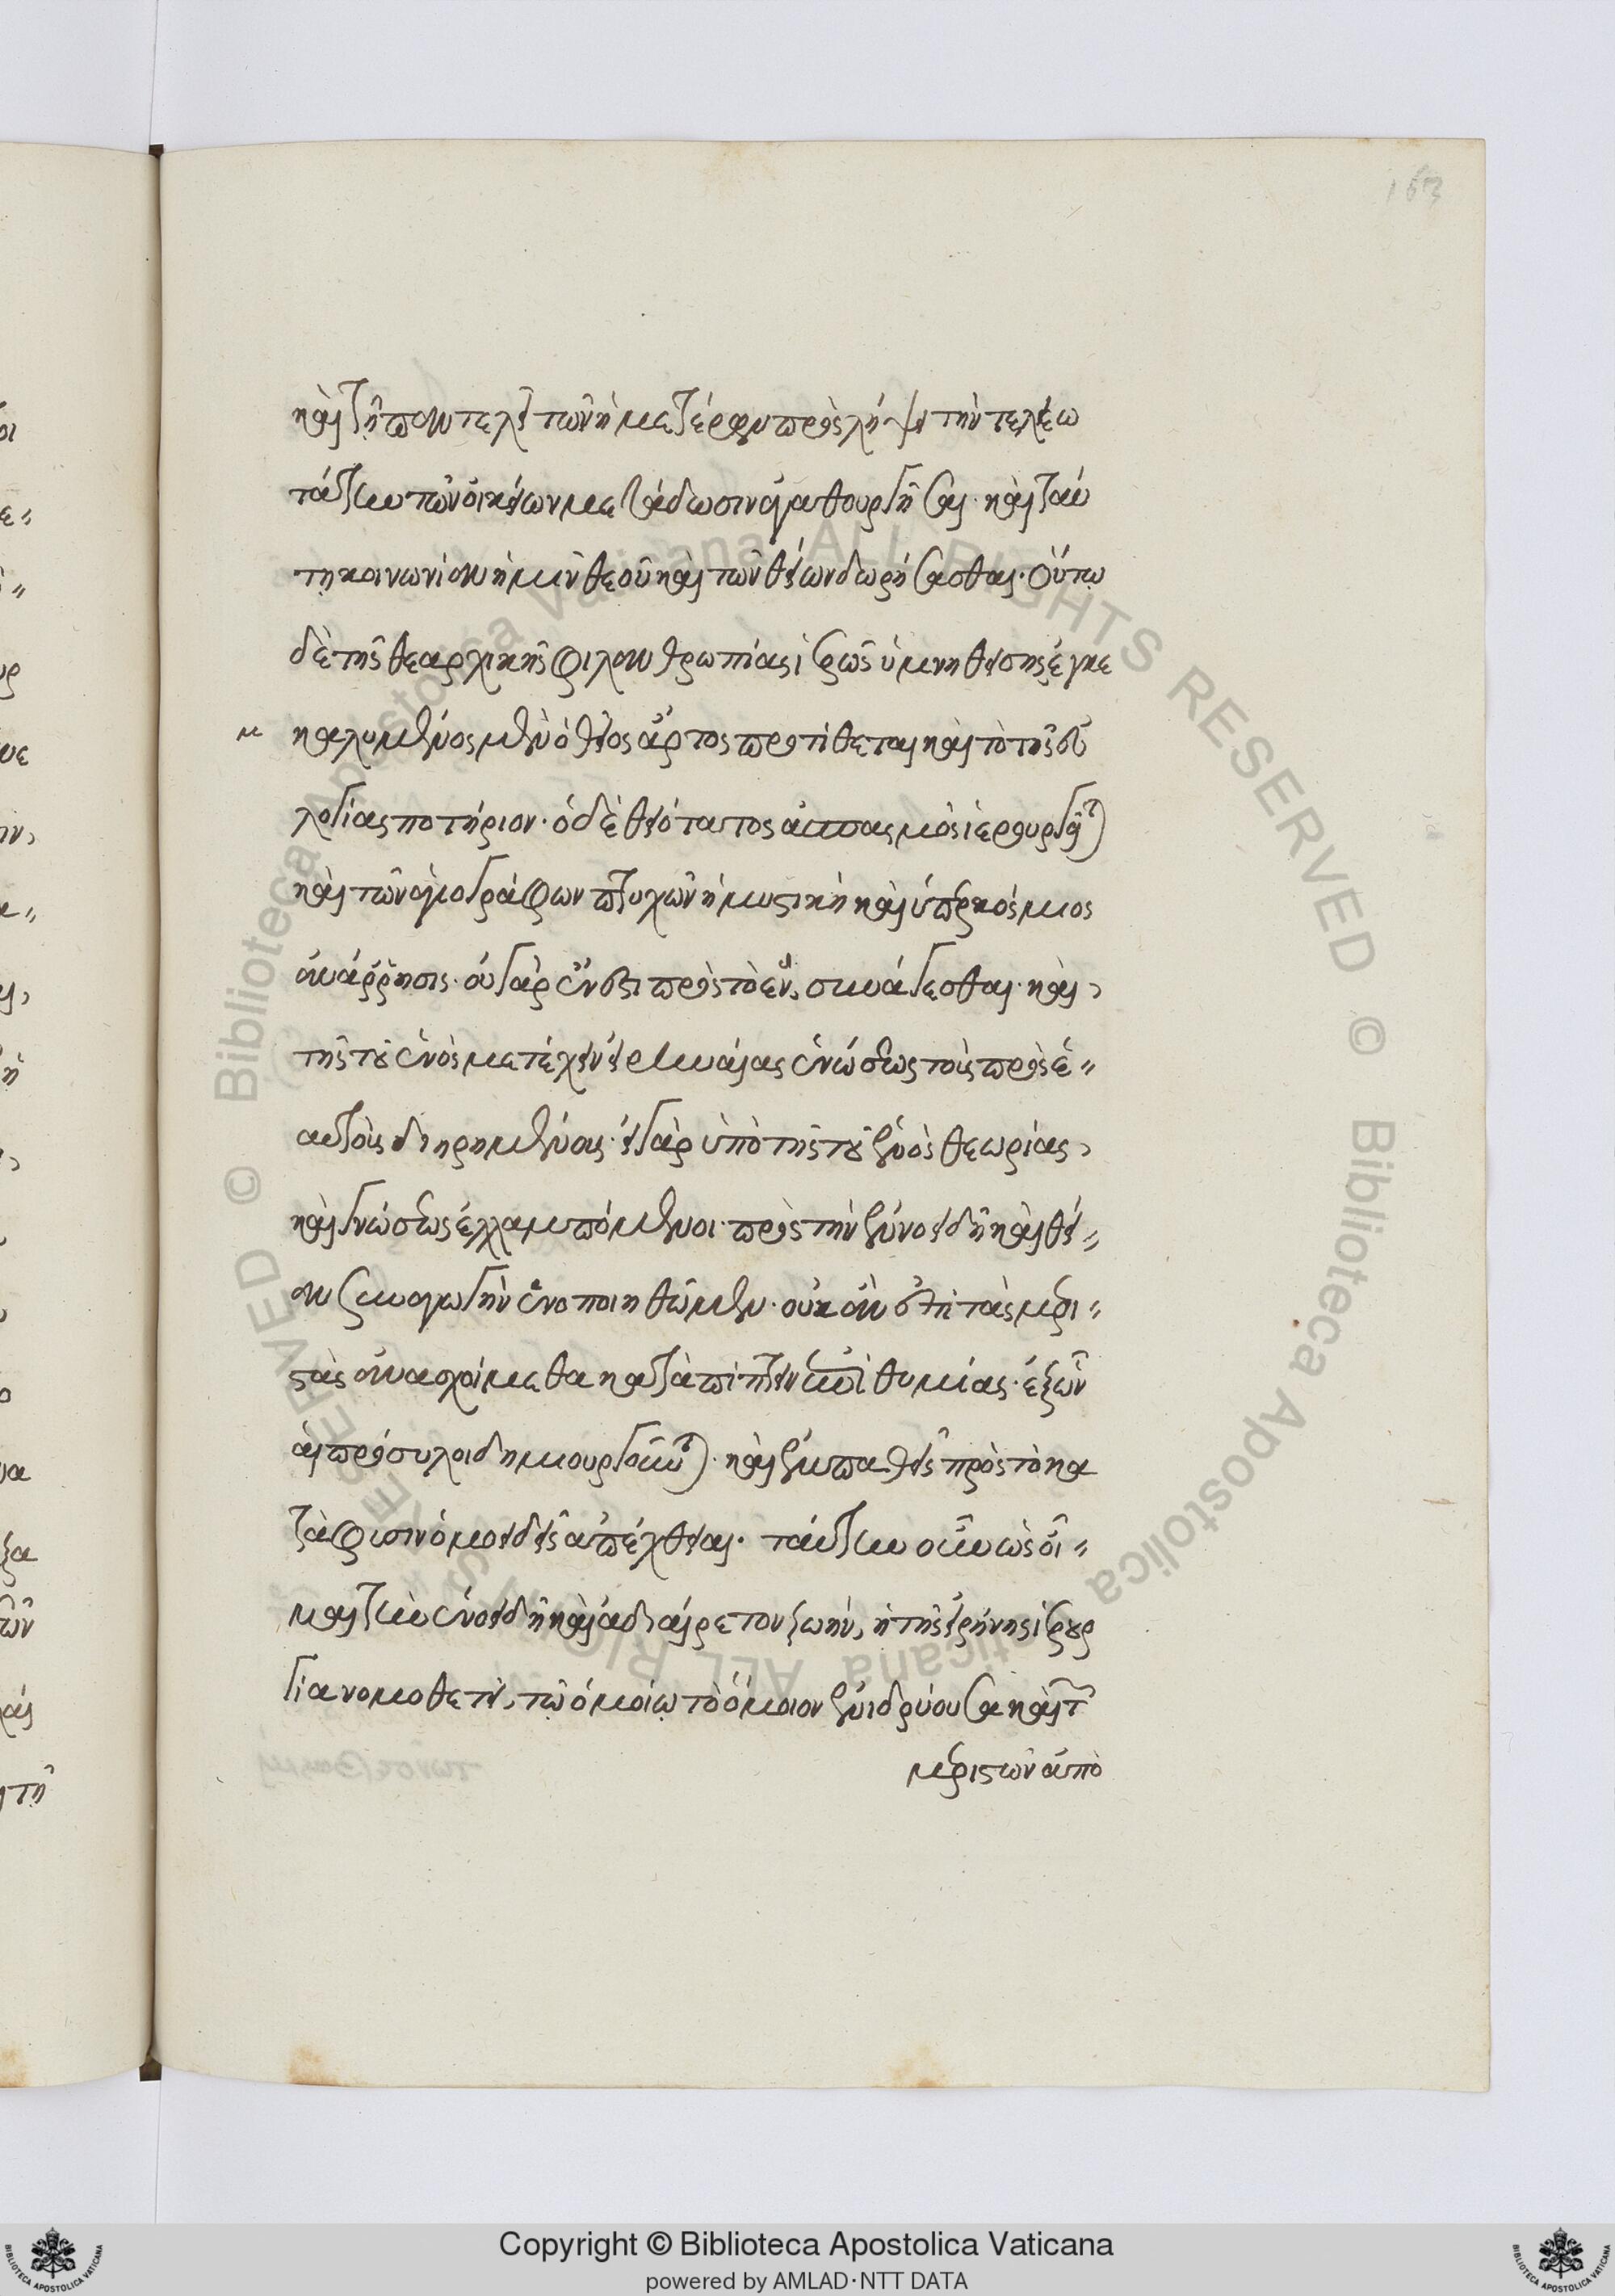 163
καὶ τῇ παντελεῖ τῶν ἡμετέρων προσλήψει τὴν τελεω
τάτην τῶν οἰκείων μετάδωσιν ἀγαθουργῆσαι. καὶ ταύ
τῃ κοινωνίαν ἡμῖν θεοῦ καὶ τῶν θείων δωρήσασθαι. οὕτω
δὲ τῆς θεαρχικῆς φιλανθρωπίας ἱερῶς ὑμνηθείσης ἐγκε
καλυμμένος μὲν ὁ θεῖος ἄρτος προτίθεται καὶ τὸ τῆς εὐ
λογίας ποτήριον. ὁ δὲ θειότατος ἀσπασμὸς ἱερουργεῖται
καὶ τῶν ἁγιογράφων πτυχῶν ἡ μυστικὴ καὶ ὑπερκόσμιος
ἀνάρρησις. οὐ γὰρ ἔνεστι πρὸς τὸ ἓν, συνάγεσθαι. καὶ
τῆς τοῦ ἑνὸς μετέχειν εἰρηναίας ἑνώσεως τοὺς πρὸς ἑ=
αυτοὺς διῃρημένους. εἰ γὰρ ὑπὸ τῆς τοῦ ἑνὸς θεωρίας,
καὶ γνώσεως ἐλλαμπόμενοι. πρὸς τὴν ἑνοειδῆ καὶ θεί=
αν συναγωγὴν ἑνοποιηθῶμεν. οὐκ ἂν ἐπὶ τὰς μερι=
στὰς ἀνασχοίμεθα καταπίπτειν ἐπιθυμίας. ἐξ ὧν
αἱ πρόσυλοι δημιουργοῦνται. καὶ ἐμπαθεῖς πρὸς τὸ κα
τὰ φύσιν ὁμοειδεῖς ἀπέχθειαι. ταύτην οὖν ὡς οἶ=
μαι τὴν ἑνοειδῆ καὶ ἀδιαίρετον ζωὴν, ἡ τῆς εἰρήνης ἱερουρ
γία νομοθετεῖ, τῷ ὁμοίῳ τὸ ὅμοιον ἐνιδρύουσα καὶ τῶν
μεριστῶν ἀπὸ
Copyright © Biblioteca Apostolica Vaticana
powered by AMLAD·NTT DATA